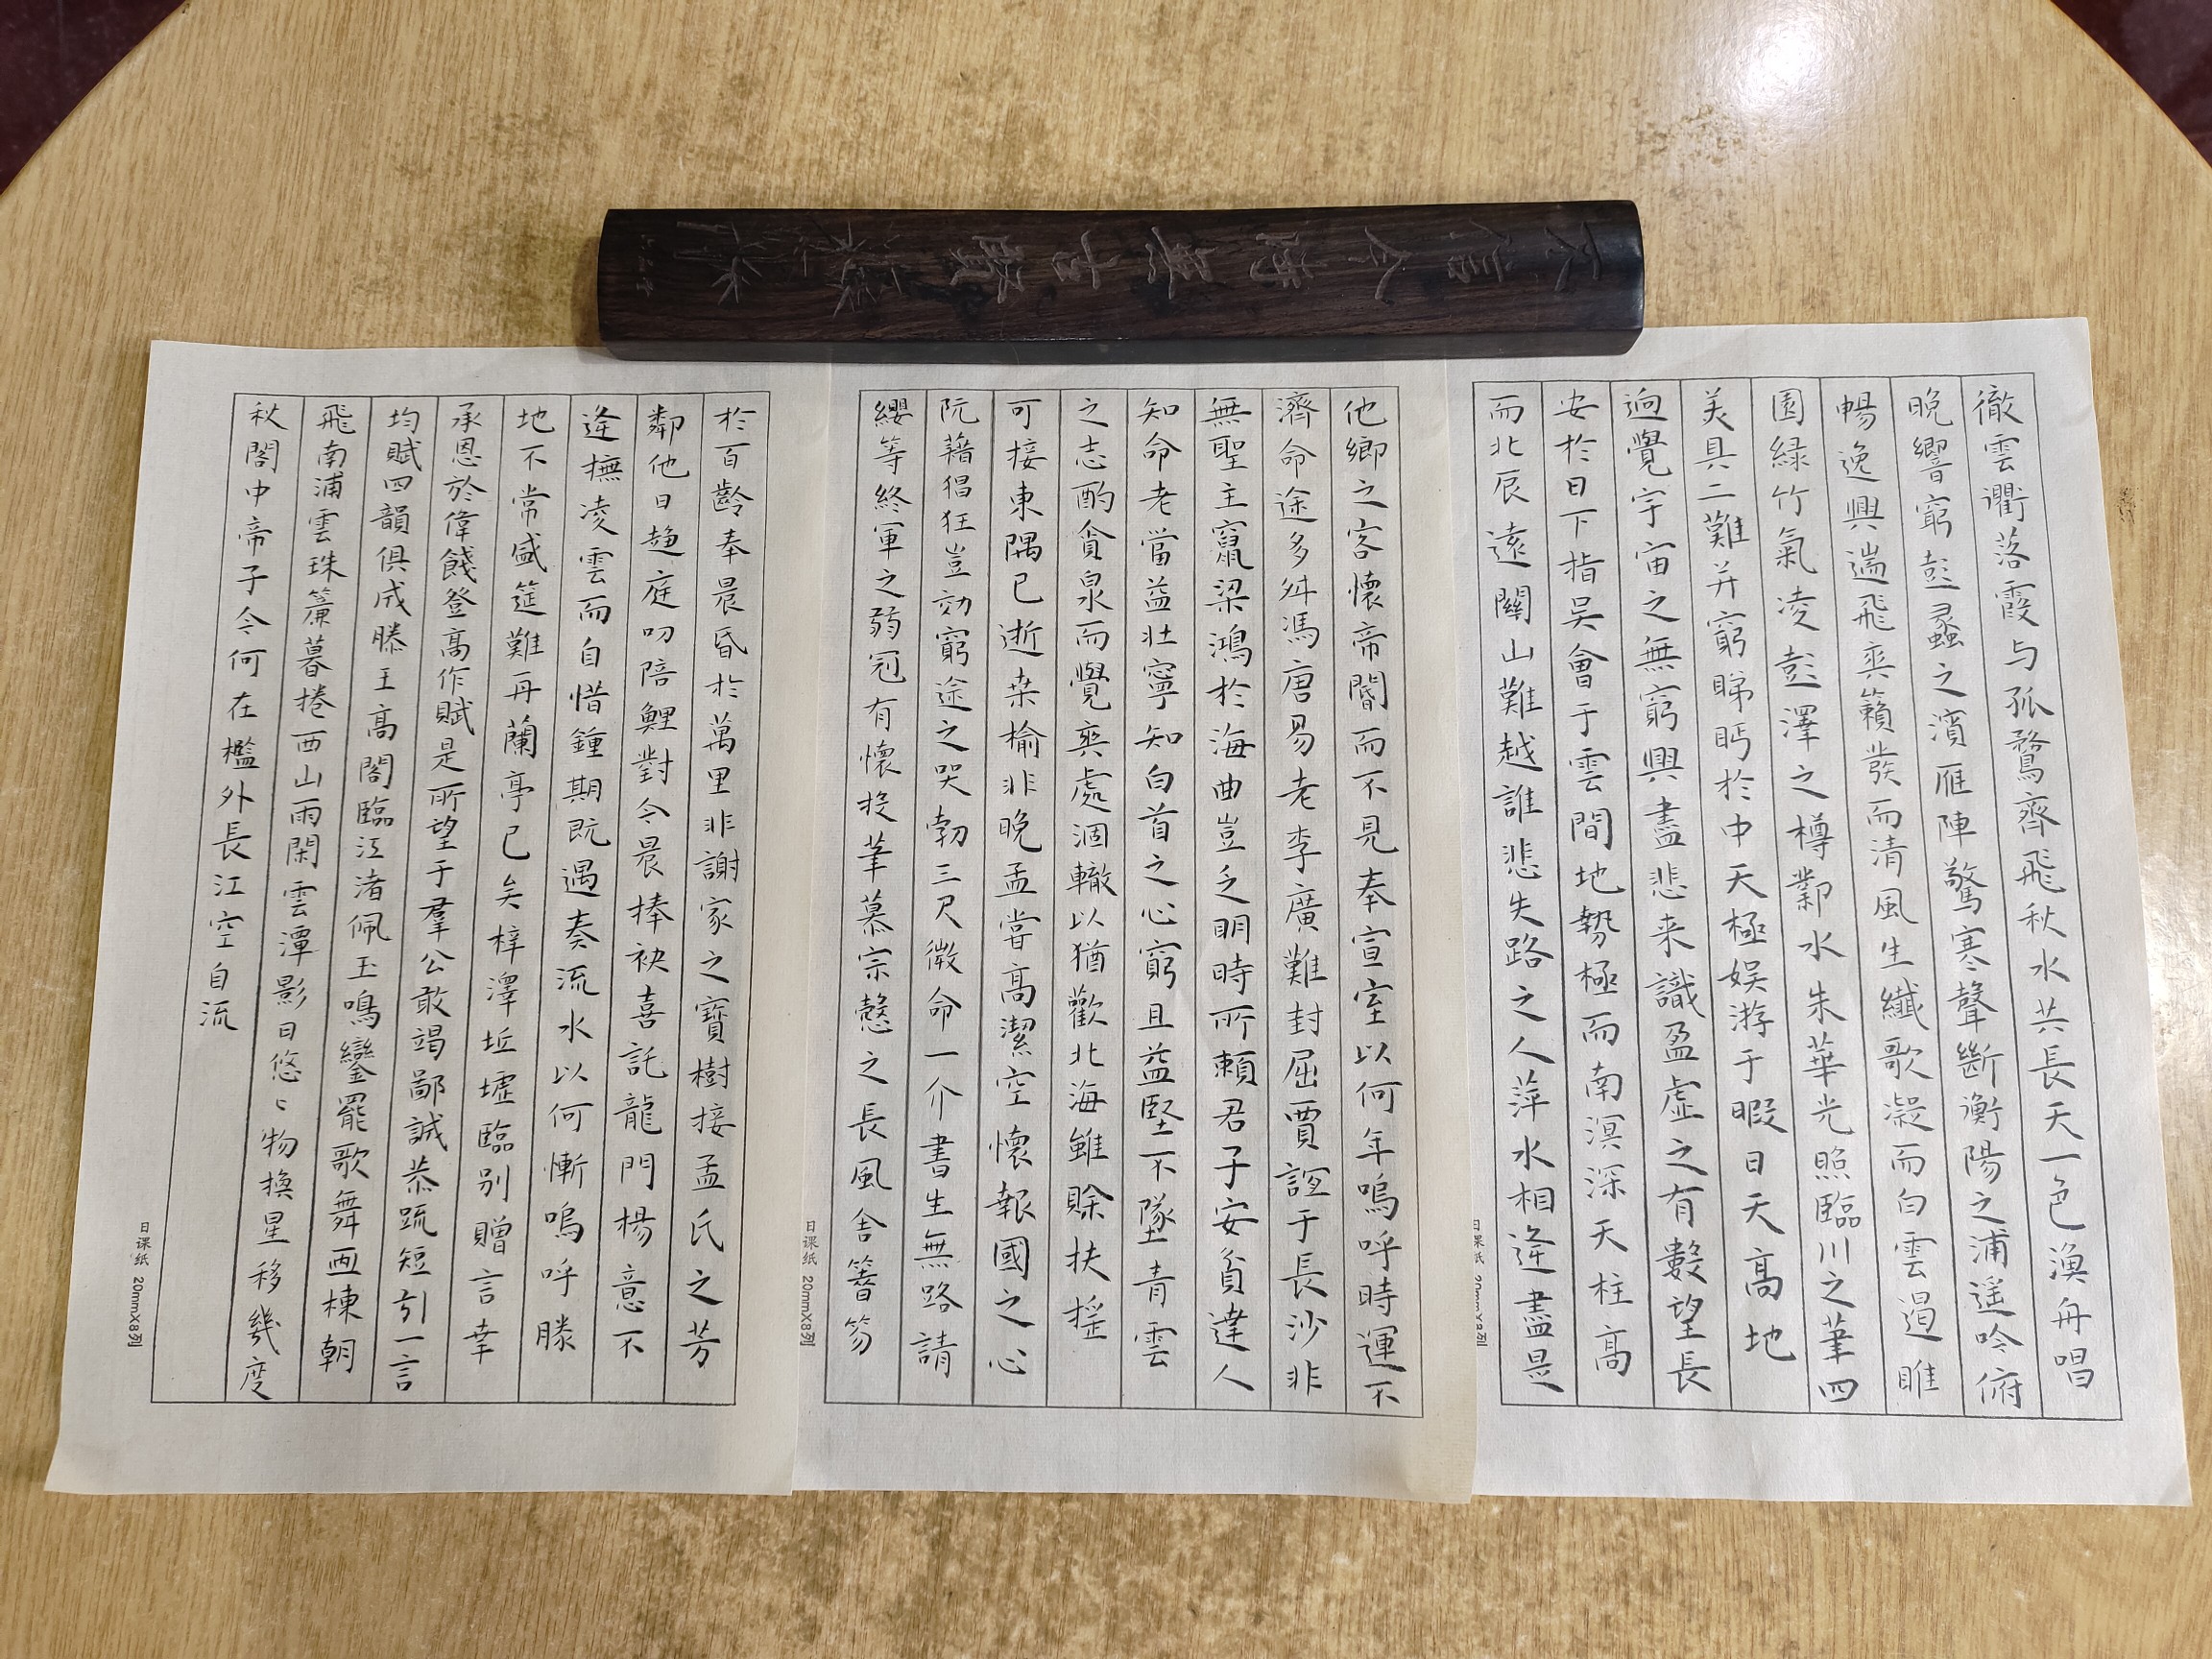 徹雲衢落霞与孤鶩齊飛秋水共長天一色漁舟唱
晚響窮彭蠡之濱雁陣驚寒聲斷衡陽之浦遥吟俯
暢逸興遄飛爽籟發而清風生纖歌凝而白雲遏睢
園緑竹氣凌彭澤之樽鄴水朱華光照臨川之筆四
美具二難并窮睇眄於中天極娱游于暇日天高地
迥覺宇宙之無窮興盡悲来識盈虚之有數望長
安於日下指吴會于雲間地勢極而南溟深天柱高
而北辰遠關山難越誰悲失路之人萍水相逢盡是
他鄉之客懷帝閽而不見奉宣室以何年嗚呼時運不
濟命途多舛馮唐易老李廣難封屈賈誼于長沙非
無聖主竄梁鴻於海曲豈乏明時所賴君子安貧達人
知命老當益壯寧知白首之心窮且益堅不墜青雲
之志酌貪泉而覺爽處涸轍以猶歡北海雖賒扶摇
可接東隅已逝桒榆非晚孟嘗高潔空懷報國之心
阮藉猖狂豈効窮途之哭勃三尺微命一介書生無路請
纓等終軍之弱冠有懷投筆慕宗慤之長風舍簪笏
於百齡奉晨昏於萬里非謝家之寶樹接孟氏之芳
鄰他日趋庭叨陪鯉對今晨捧袂喜託龍門楊意不
逢撫凌雲而自惜鍾期既遇奏流水以何慚嗚呼勝
地不常盛筵難再蘭亭已矣梓澤坵墟臨别贈言幸
承恩於偉餞登高作賦是所望于羣公敢竭鄙誠恭疏短引一言
均賦四韻俱成滕王高閣臨江渚佩玉鳴鸞罷歌舞画棟朝
飛南浦雲珠簾暮捲西山雨閑雲潭影日悠〻物换星移幾度
秋閣中帝子今何在檻外長江空自流
日课纸 20mmX8列
日课纸 20mmX8列
日课纸 20mmX8列